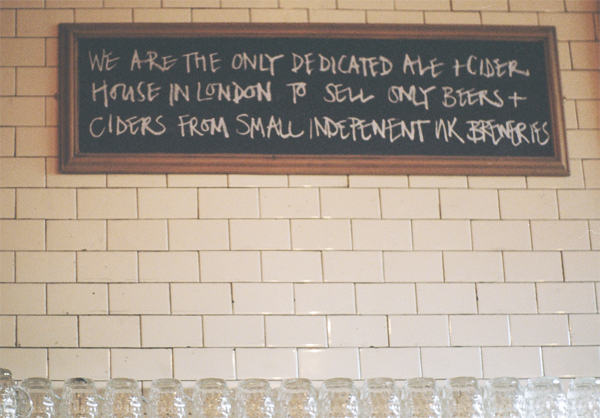 WE ARE THE ONLY DEDICATED ALE + CIDER
HOUSE IN LONDON TO SELL ONLY BEERS +
CIDERS FROM SMALL INDEPENENT UK BREWERIES